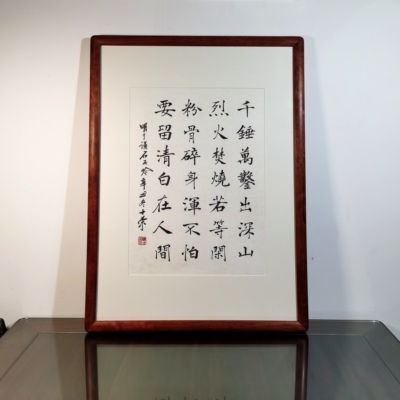 千錘萬鑿出深山
烈火焚燒若等閑
粉骨碎身渾不怕
要留清白在人間
明于謙石灰吟辛丑冬